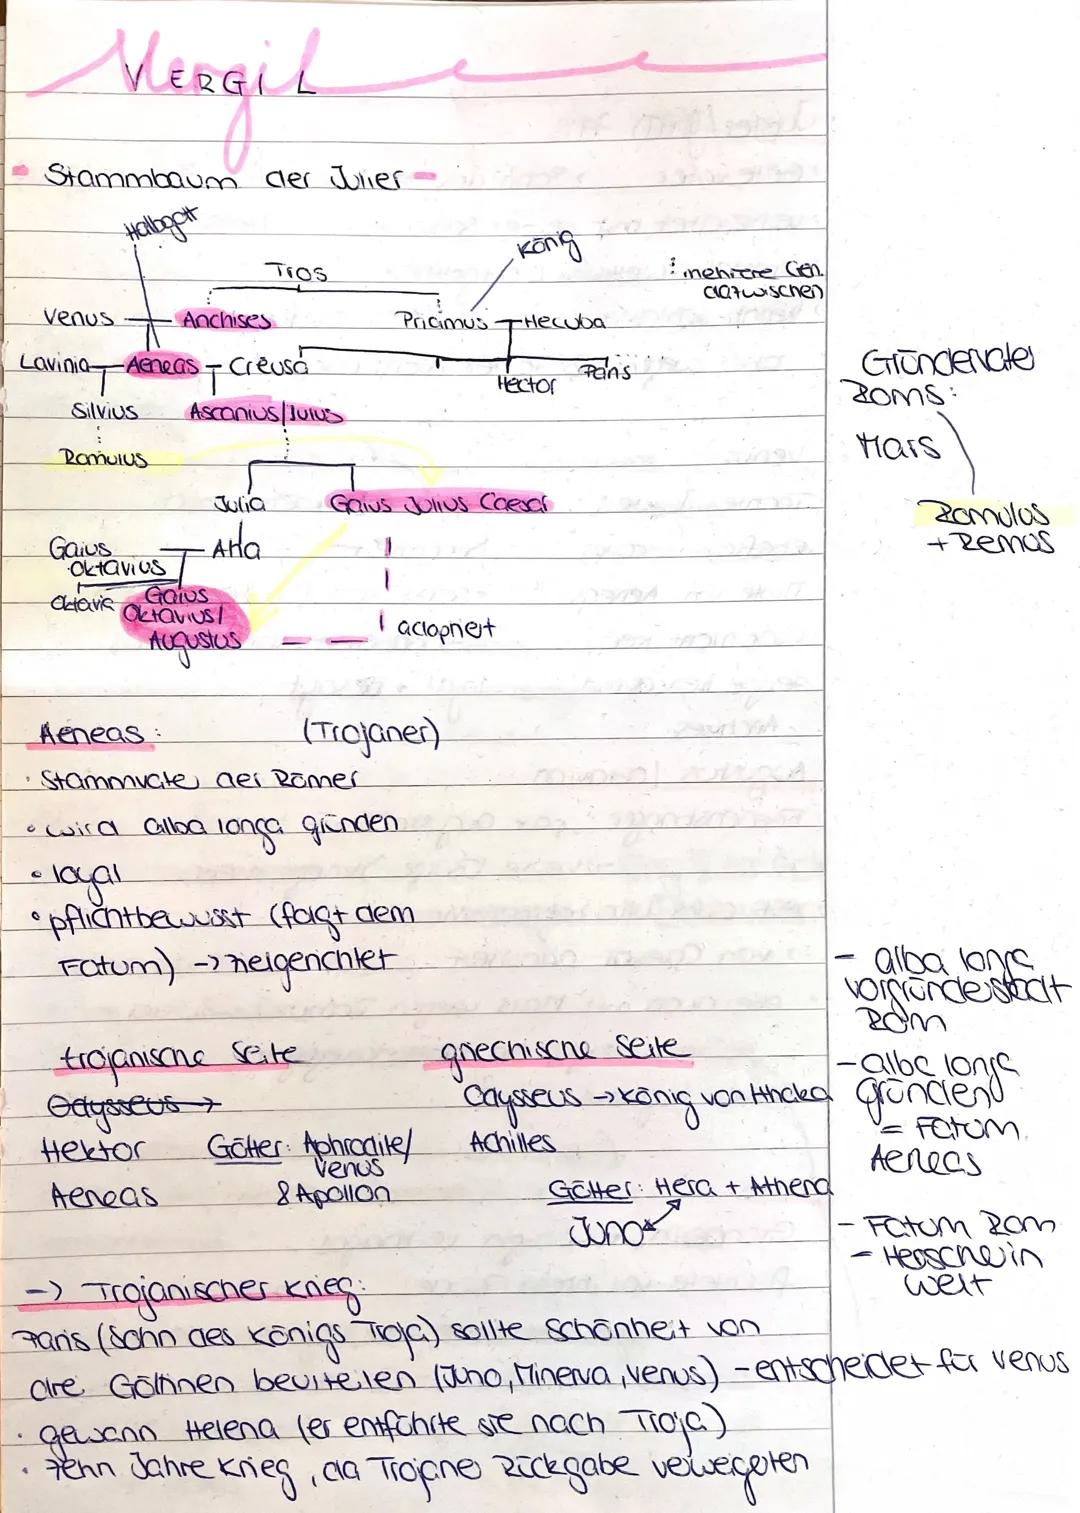 Vergil
VERGIL
- Stammbaum der Julier -
Halbgott
König
Tros
⋮ mehrere Gen.
dazwischen
Venus Anchises Priamus Hecuba
Lavinia Aeneas Creusa
Hector Paris
Silvius Ascanius/Iulus
Romulus
Julia Gaius Julius Caesar
Gaius Atia
Oktavius
Oktavia Gaius
Oktavius/
Augustus
adoptiert
Gründervater
Roms:
Mars
Romulus
+ Remus
Aeneas: (Trojaner)
• Stammvater der Römer
• wird alba longa gründen
• loyal
• pflichtbewusst (folgt dem
Fatum) -> zielgerichtet
trojanische Seite griechische Seite
Odysseus -> Odysseus -> König von Ithaka
Hektor Götter: Aphrodite/ Achilles
Venus
Aeneas & Apollon Götter: Hera + Athena
Juno
- alba longa
vorgründestadt
Rom
- alba longa
gründen
= Fatum
Aeneas
- Fatum Rom
- Herrscher in
Welt
-> Trojanischer Krieg:
Paris (Sohn des Königs Troja) sollte Schönheit von
drei Göttinnen beurteilen (Juno, Minerva, Venus) - entscheidet für Venus
• gewann Helena (er entführte sie nach Troja)
• zehn Jahre Krieg, da Trojaner Rückgabe verweigerten